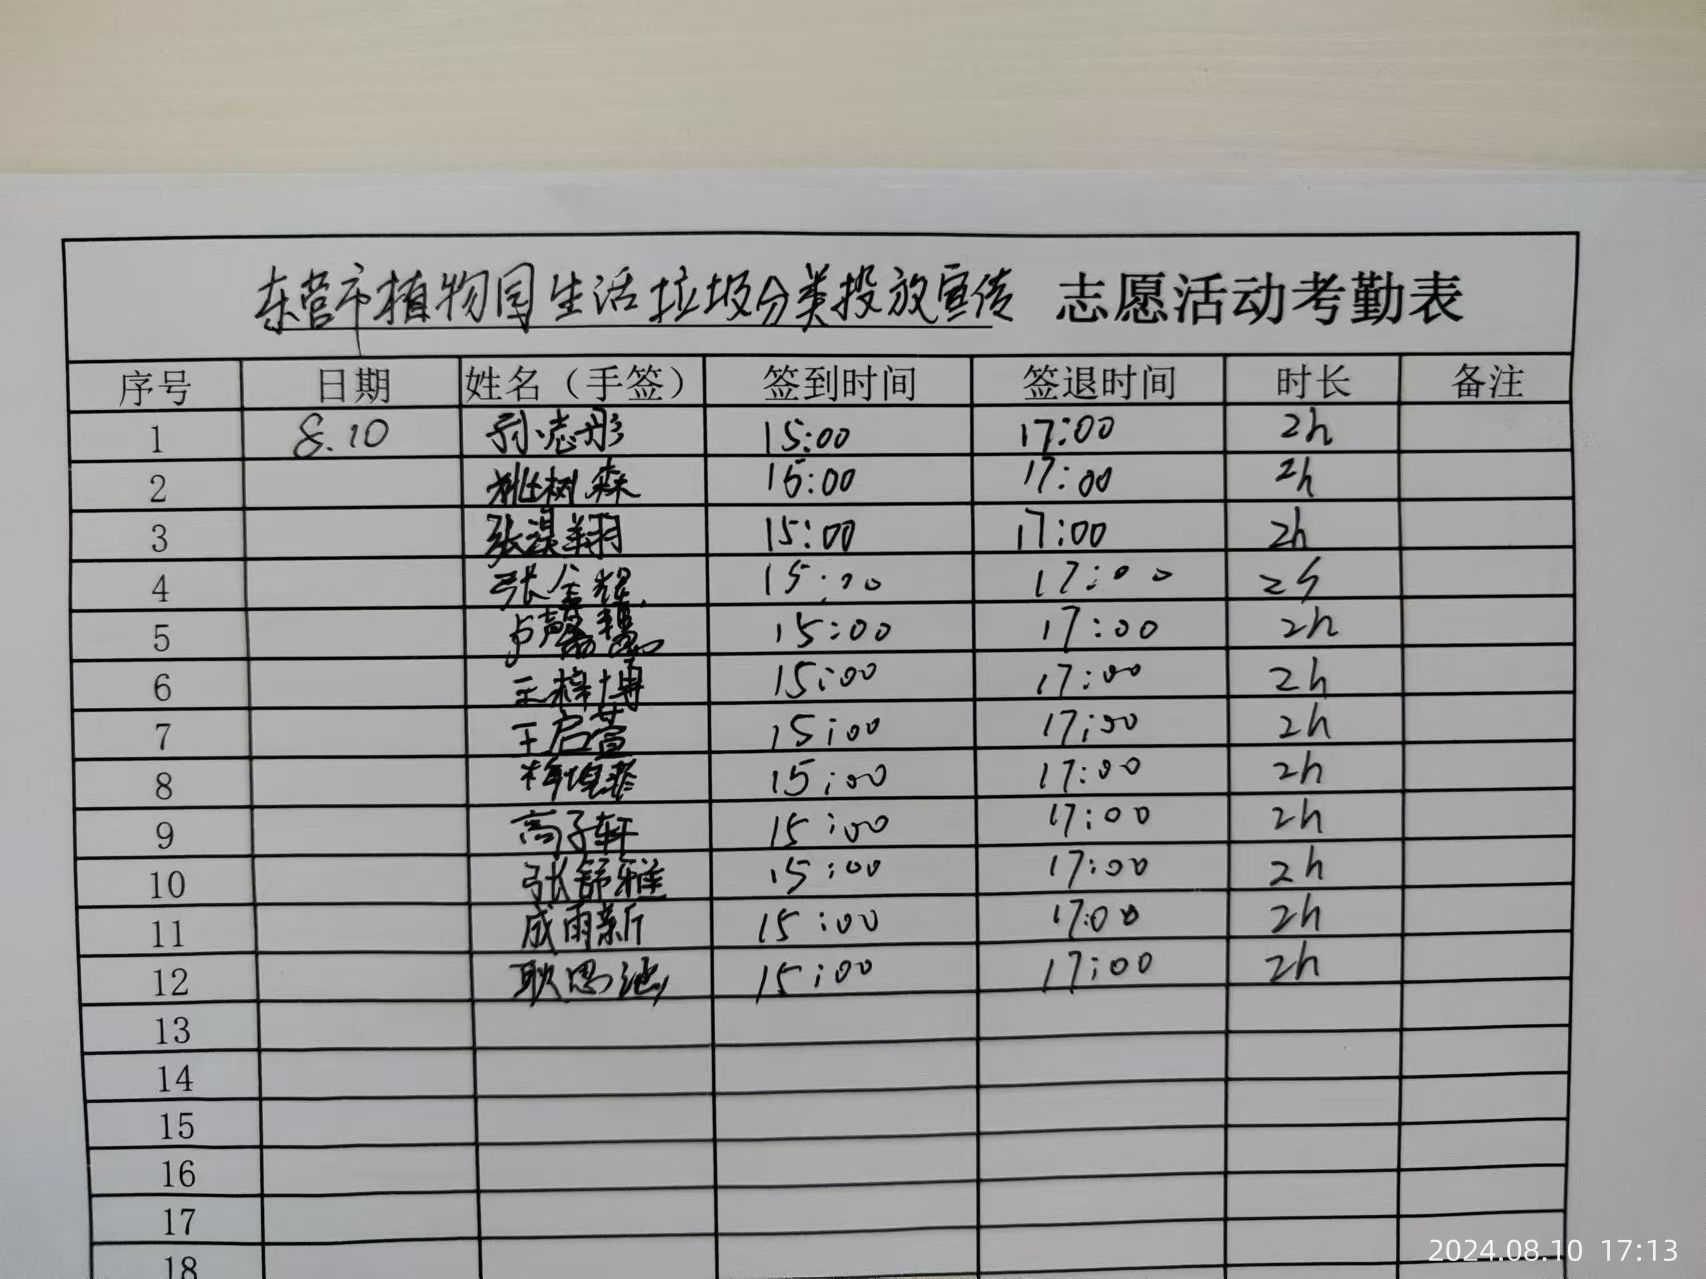 东营市植物园生活垃圾分类投放宣传 志愿活动考勤表
序号 日期 姓名（手签） 签到时间 签退时间 时长 备注
1 8.10 孙志彤 15:00 17:00 2h
2 姚树森 15:00 17:00 2h
3 张淏翔 15:00 17:00 2h
4 张 15:00 17:00 2h
5 卢馨 15:00 17:00 2h
6 王梓博 15:00 17:00 2h
7 王启萱 15:00 17:00 2h
8 15:00 17:00 2h
9 高子轩 15:00 17:00 2h
10 张舒雅 15:00 17:00 2h
11 成雨新 15:00 17:00 2h
12 耿思 15:00 17:00 2h
13
14
15
16
17
18
2024.08.10 17:13